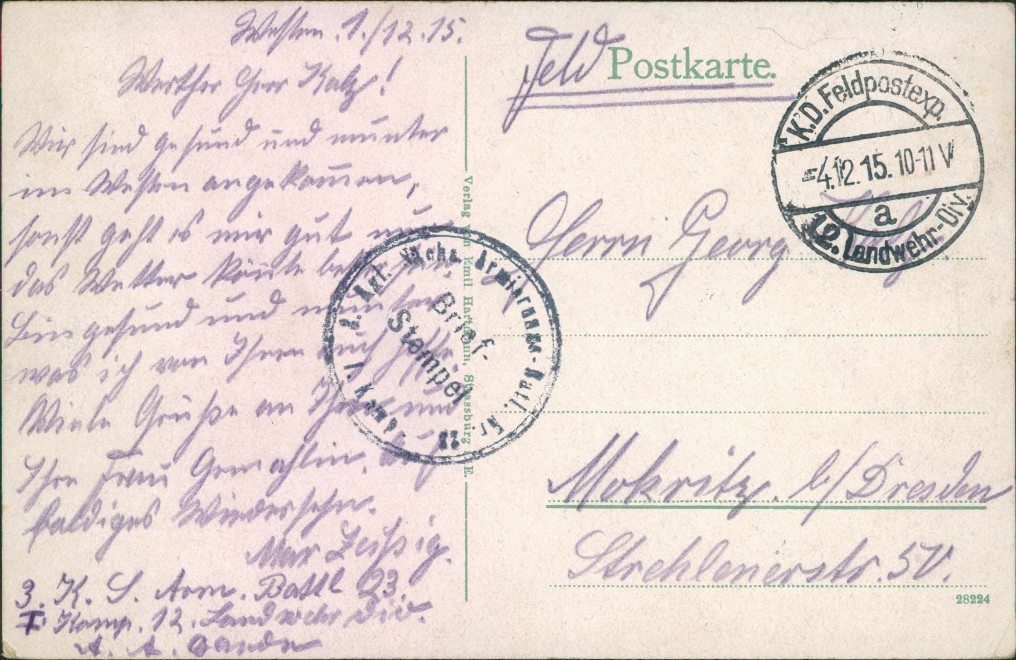 Westen. 1./12.15.
Werther Herr Kalz!
Wir sind gesund und munter
im Westen angekommen,
sonst geht es mir gut und
das Wetter könte besser
bin gesund und munter
was ich von Ihnen auch hoffe
Viele Grüße an Ihnen und
Ihre Frau Gemahlin. Auf
baldiges Wiedersehn.
Max Zeißig.
3. K. S. Arm. Battl 23.
I. Komp. 12. Landwehr Div.
A. A. Gaede
Feld Postkarte.
K.D. Feldpostexp.
-4.12.15. 10-11 V
a
12. Landwehr-Div.
Herrn Georg
Mokritz. b/Dresden
Strehlenerstr. 5V.
28224
Verlag von Emil Hartmann, Strassburg i. E.
3. Kgl. Sächs. Armierungs-Batl. Nr. 23
1. Komp.
Brief-
Stempel